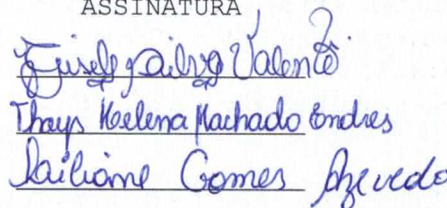 ASSINATURA
Gisele Silva Valente
Thays Helena Machado Endres
Lailiane Gomes Azevedo